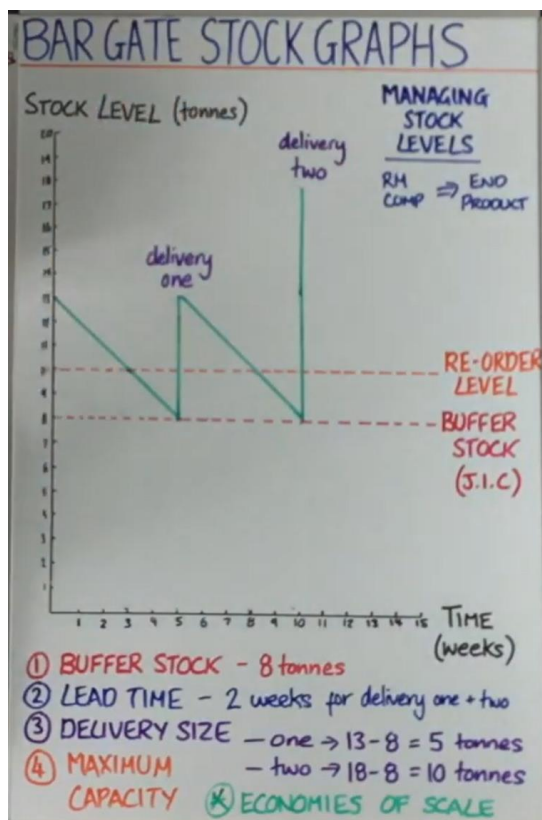 BAR GATE STOCK GRAPHS
STOCK LEVEL (tonnes)
MANAGING
STOCK
LEVELS
RM
COMP ⇒ END
PRODUCT
delivery
two
delivery
one
20
19
18
17
16
15
14
13
12
11
10
9
8
7
6
5
4
3
2
1
RE-ORDER
LEVEL
BUFFER
STOCK
(J.I.C)
1 2 3 4 5 6 7 8 9 10 11 12 13 14 15
TIME
(weeks)
① BUFFER STOCK - 8 tonnes
② LEAD TIME - 2 weeks for delivery one + two
③ DELIVERY SIZE - one → 13-8 = 5 tonnes
- two → 18-8 = 10 tonnes
④ MAXIMUM
CAPACITY
* ECONOMIES OF SCALE